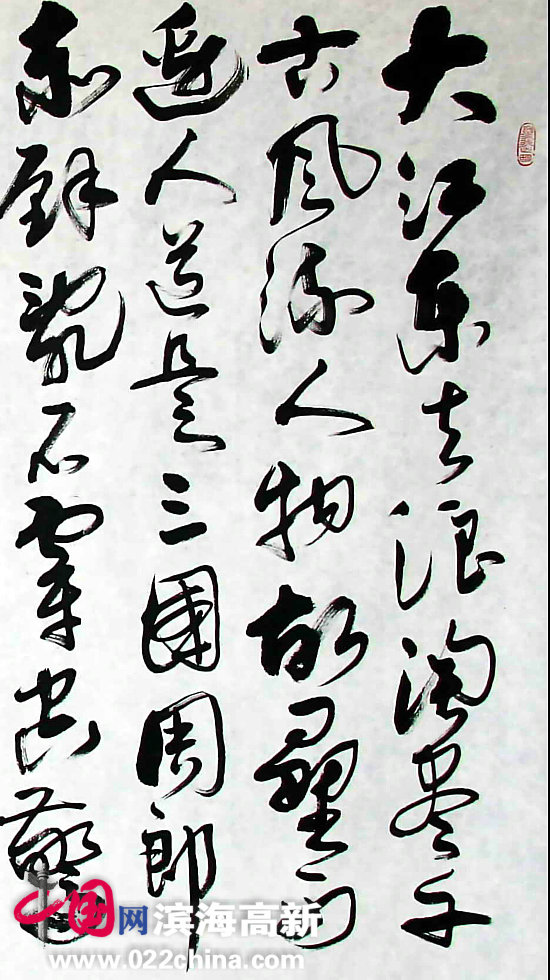 大江東去浪淘盡千
古風流人物故壘西
邊人道是三國周郎
赤壁亂石穿空驚
中国网滨海高新
www.022china.com